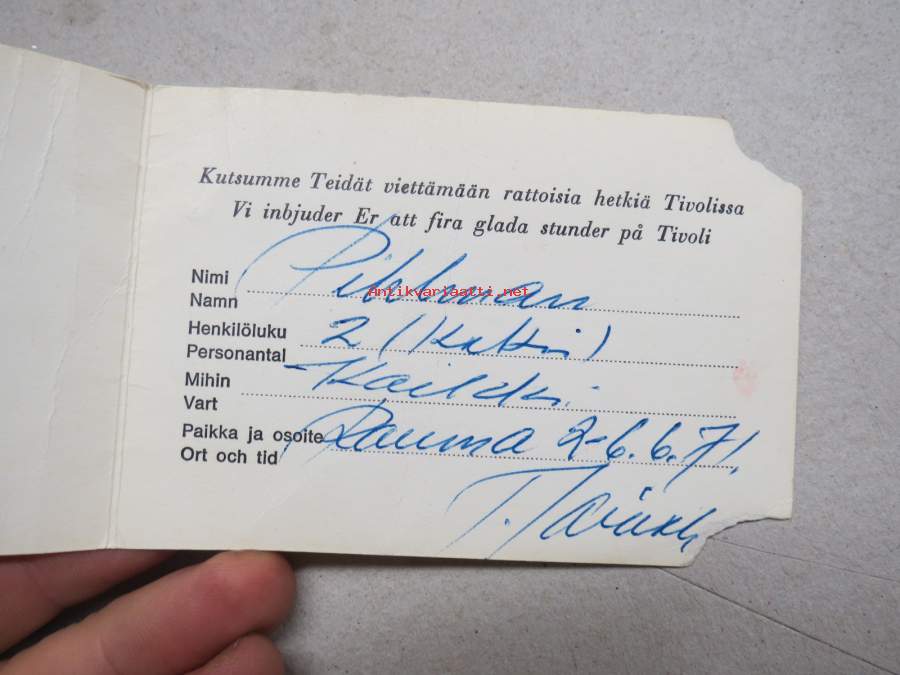 Kutsumme Teidät viettämään rattoisia hetkiä Tivolissa
Vi inbjuder Er att fira glada stunder på Tivoli
Nimi Pihlman
Namn
Antikvariaatti.net
Henkilöluku 2 (kaksi)
Personantal
Mihin Kaikki
Vart
Paikka ja osoite Rauma 2-6.6.71.
Ort och tid
T.